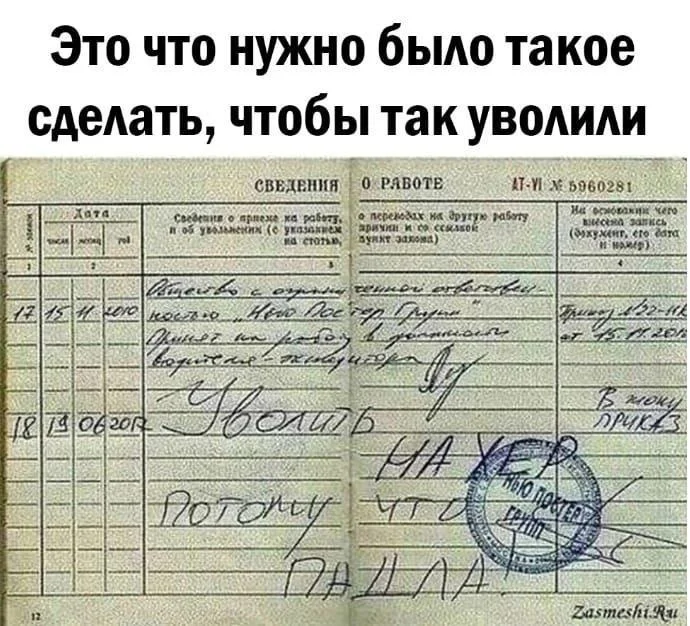 Это что нужно было такое
сделать, чтобы так уволили
СВЕДЕНИЯ О РАБОТЕ AT-VI № 5960281
№ записи
Дата
число месяц год
Сведения о приеме на работу, о переводах на другую работу
и об увольнении (с указанием причин и со ссылкой
на статью, пункт закона)
На основании чего
внесена запись
(документ, его дата
и номер)
1 2 3 4
Общество с ограниченной ответствен-
17 15 11 2010 ностью „Нью Постер Групп"
Принят на работу в должности
водителя-экспедитора
Приказ №22-НК
от 15.11.2010
18 19 06 2012 Уволить
В жопу
ПРИКАЗ
НАХЕР
ПОТОМУ ЧТО
ПАДЛА
НЬЮ ПОСТЕР
ГРУПП
12
Zasmeshi.Ru